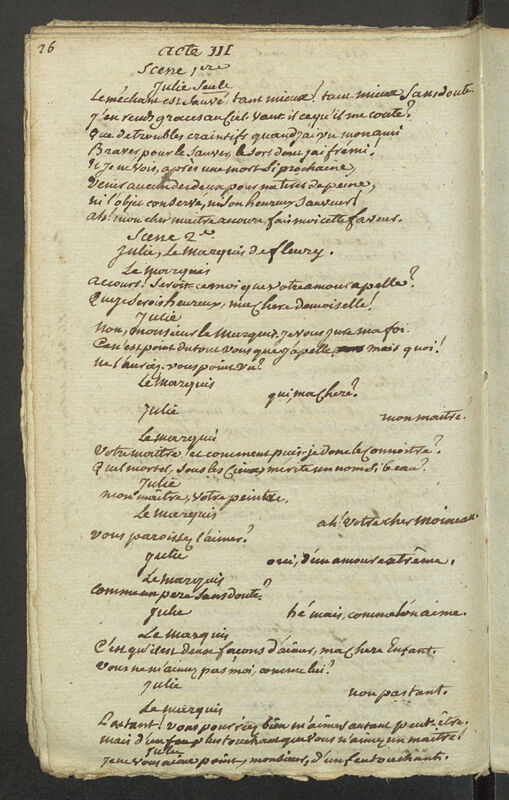 26
acte III
Scene 1ere
Julie Seule
Le méchant est Sauvé, tant mieux! tant mieux Sans doute
j'en rends graces au Ciel. Vaut il ce qu'il me coute?
Que de troubles craintifs quand j'ai vu mon ami
Braver, pour le Sauver, le Sort dont j'ai frémi!
Et je ne vois, après une mort Si prochaine,
Venir aucun des deux pour me tirer de peine,
ni l'objet conservé, ni Son heureux Sauveur!
ah! mon cher maitre accours, fais moi cette faveur.
Scene 2e
Julie, Le Marquis de fleury.
Le Marquis
accours! Seroit-ce moi que votre amour apelle?
Que je Serois heureux, ma chere demoiselle!
Julie
Non, monsieur le Marquis. je vous jure ma foi
Ce n'est point du tout vous que j'apelle. mais quoi!
ne l'auriez-vous point vu?
Le Marquis
qui ma chere?
Julie
mon maitre.
Le Marquis
Votre maître! et comment puis-je donc le connoitre?
Quel mortel, Sous les Cieux, merite un nom Si beau?
Julie
mon maitre, votre peintre.
Le Marquis
ah! votre cher Moineau.
vous paroissez l'aimer?
Julie
oui, d'un amour extrême.
Le Marquis
comme un pere Sans doute?
Julie
hé mais, comme l'on aime.
Le Marquis
C'est qu'il est deux façons d'aimer, ma chere Enfant.
Vous ne m'aimez pas moi, comme lui?
Julie
non pas tant.
Le Marquis
Pas tant! vous pourriez bien m'aimer autant peut-être.
mais d'un feu plus touchant que vous n'aimez un maitre!
Julie
Je ne vous aime point, monsieur, d'un feu touchant.